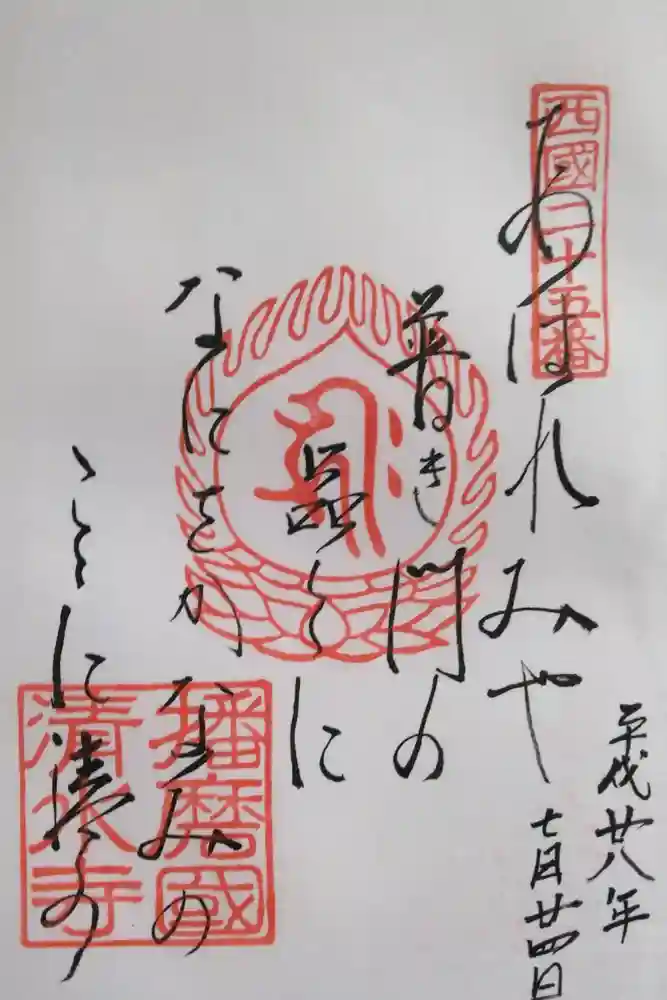 平成廿八年
七月廿四日
西國二十五番
あはれみや
普き門の
品〱に
なにをかなみの
こゝに清水
播磨國
清水寺